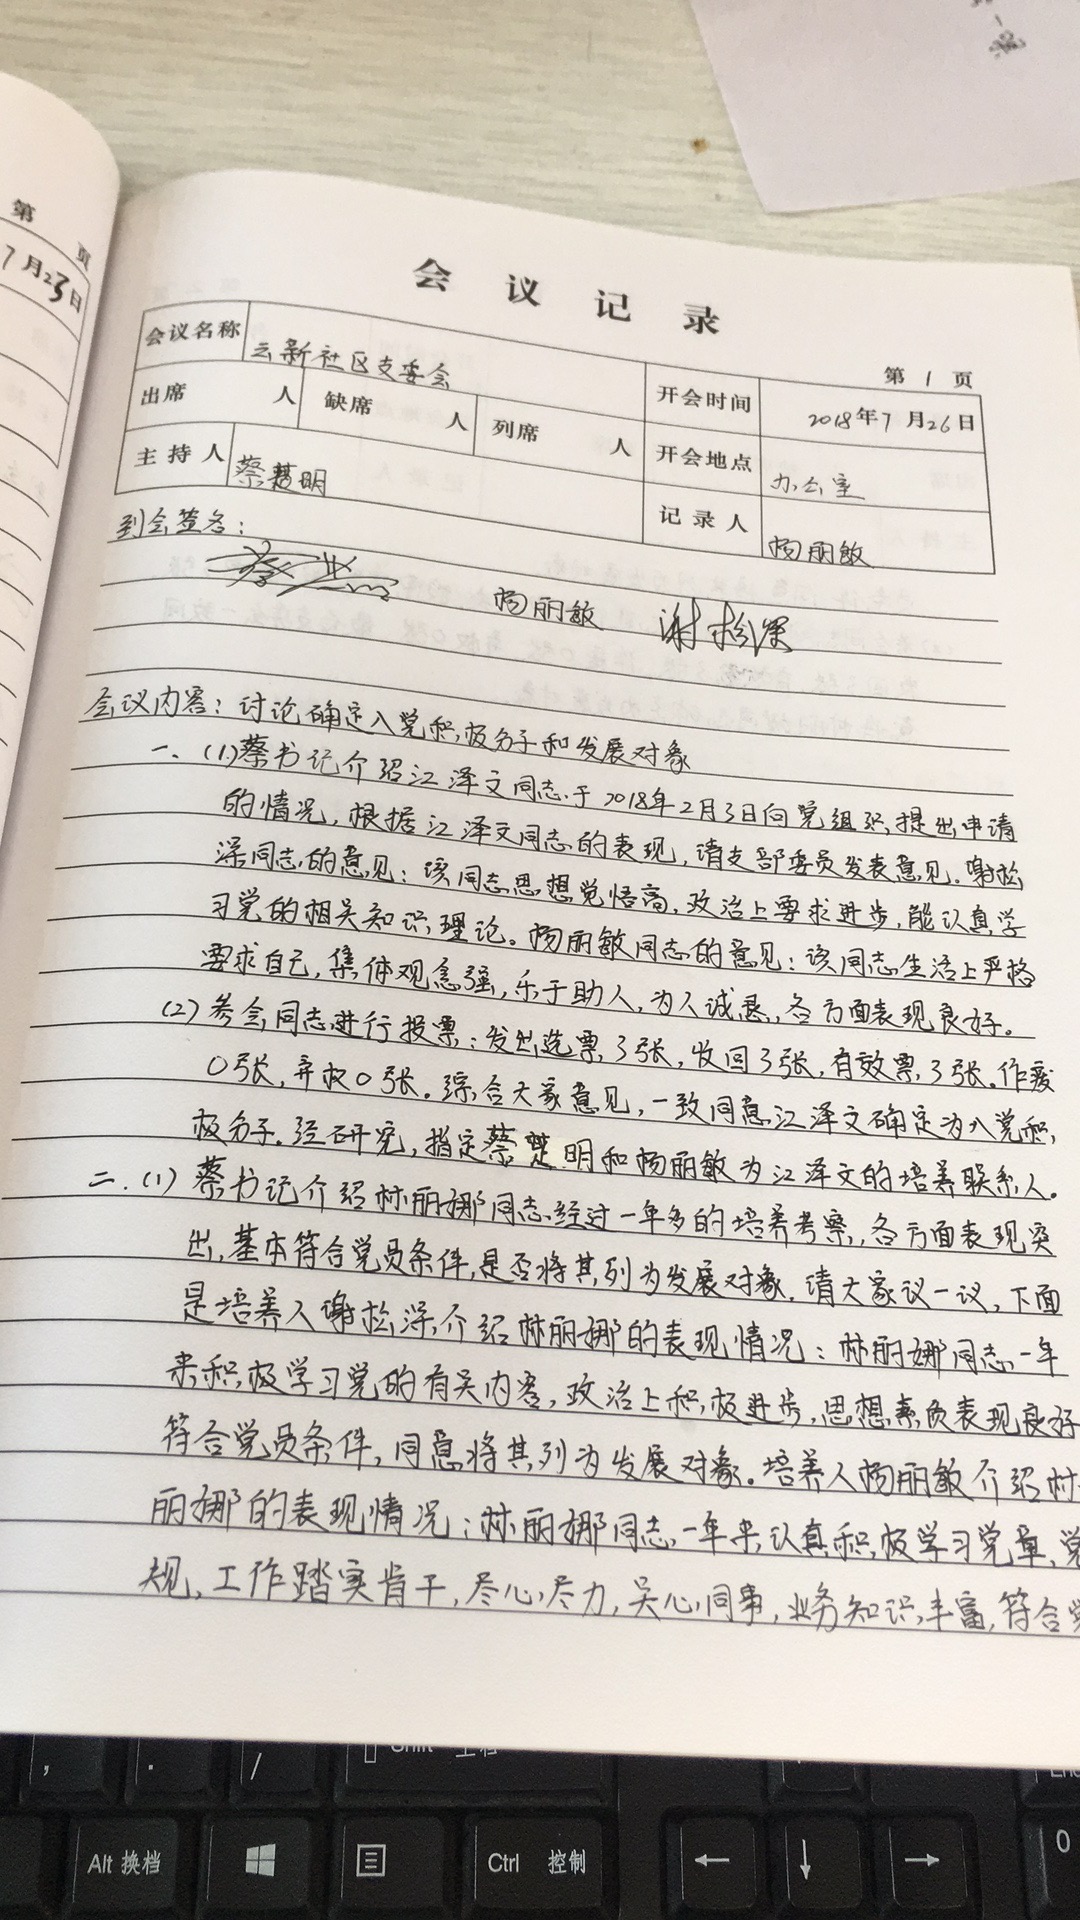 第 页
7月23日
会议记录
第 1 页
会议名称 云新社区支委会 开会时间 2018年7月26日
出席 人 缺席 人 列席 人 开会地点 办公室
主持人 蔡楚明 记录人 杨丽敏
到会签名：
杨丽敏 谢松深
会议内容：讨论确定入党积极分子和发展对象
一、(1)蔡书记介绍江泽文同志于2018年2月3日向党组织提出申请
的情况，根据江泽文同志的表现，请支部委员发表意见。谢松
深同志的意见：该同志思想觉悟高，政治上要求进步，能认真学
习党的相关知识理论。杨丽敏同志的意见：该同志生活上严格
要求自己，集体观念强，乐于助人，为人诚恳，各方面表现良好。
(2)参会同志进行投票：发出选票3张，收回3张，有效票3张。作废
0张，弃权0张。综合大家意见，一致同意江泽文确定为入党积
极分子。经研究，指定蔡楚明和杨丽敏为江泽文的培养联系人。
二、(1)蔡书记介绍林丽娜同志经过一年多的培养考察，各方面表现突
出，基本符合党员条件，是否将其列为发展对象。请大家议一议，下面
是培养人谢松深介绍林丽娜的表现情况：林丽娜同志一年
来积极学习党的有关内容，政治上积极进步，思想素质表现良好
符合党员条件，同意将其列为发展对象。培养人杨丽敏介绍林
丽娜的表现情况：林丽娜同志一年来认真积极学习党章，党
规，工作踏实肯干，尽心尽力，关心同事，业务知识丰富，符合党
, . / Shift 上档
Alt 换档 Ctrl 控制 ← ↓ → 0